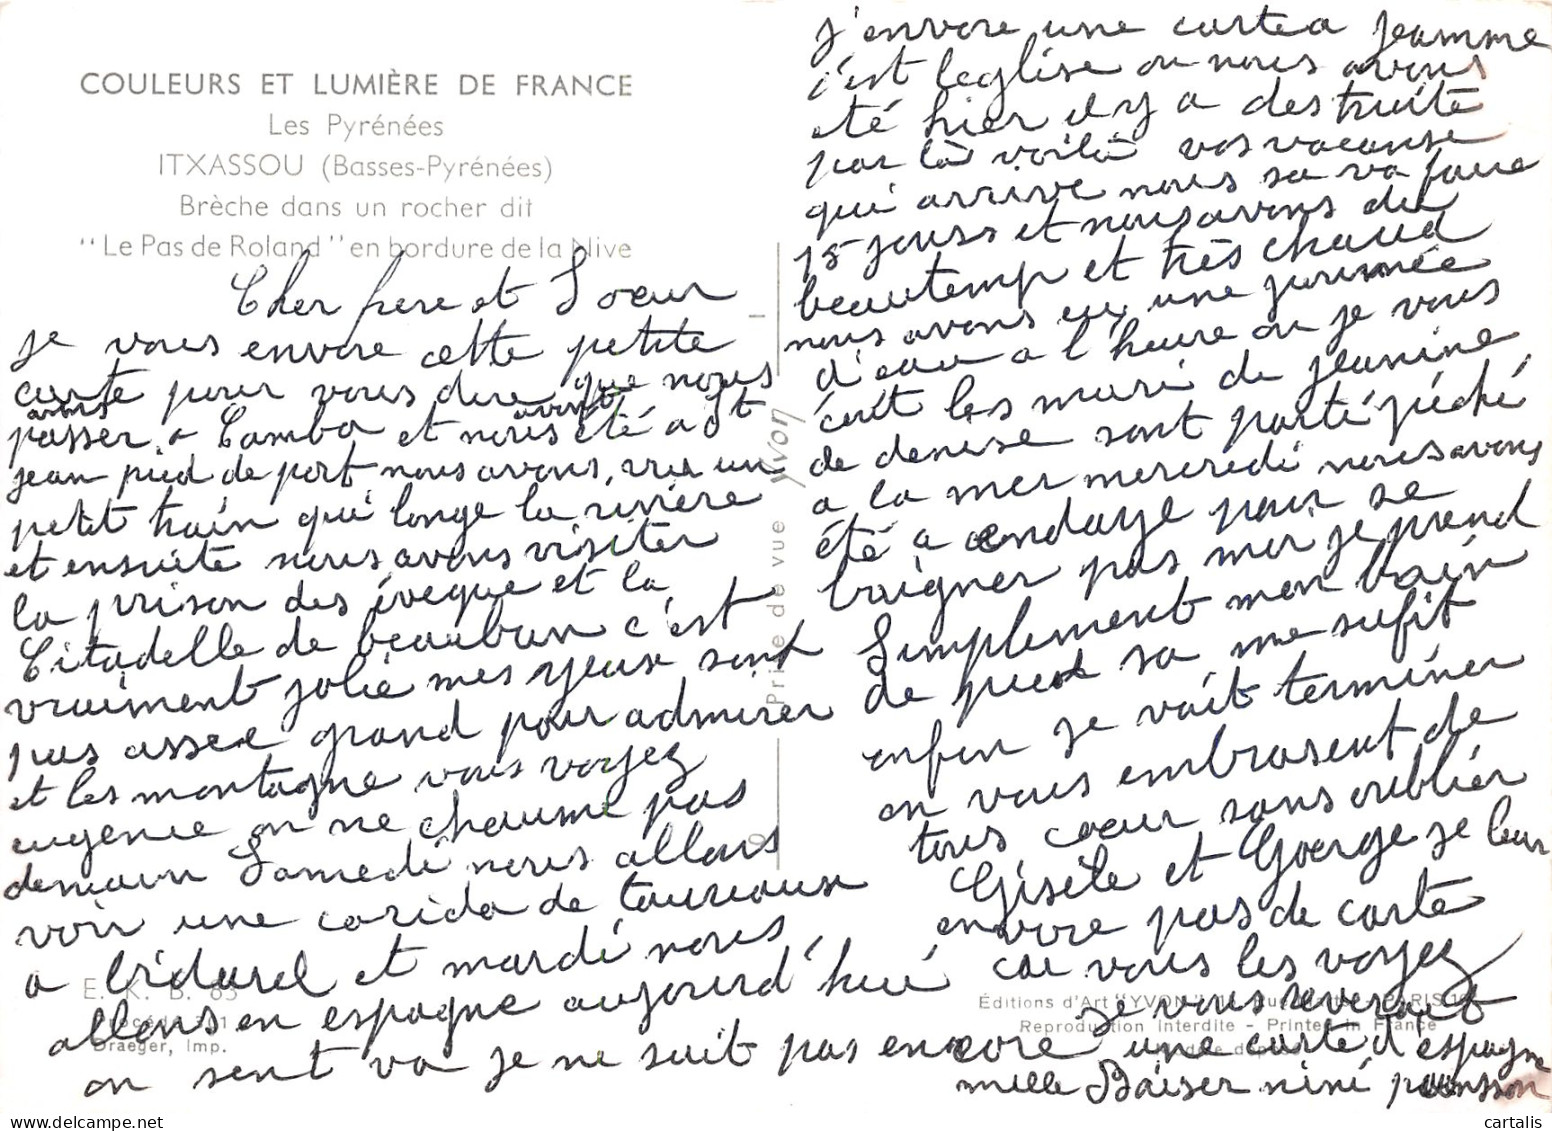 COULEURS ET LUMIÈRE DE FRANCE
Les Pyrénées
ITXASSOU (Basses-Pyrénées)
Brèche dans un rocher dit
"Le Pas de Roland" en bordure de la Nive
Cher frere et Soeur
je vous envore cette petite
carte pour vous dire que nous
avons
passer a Cambo et nous avons été a st
jean pied de port nous avons vu un
petit train qui longe la rivière
et ensuite nous avons visiter
la prison des éveque et la
Citadelle de beauban c'est
vraiment jolie mes yeux sont
pas assez grand pour admirer
et les montagne vous voyez
eugenie on ne chaume pas
demain Samedi nous allons
voir une corida de taureaux
a bidarel et mardi nous
allons en espagne aujourd'hui
on sent va je ne suit pas encore
E. K. B. 63
Procédé 301
Draeger, Imp.
Prise de vue Yvon
j'envore une carte a jeamme
c'est l'eglise ou nous avons
été hier il y a des truite
par là voilà vos vacanse
qui arrive nous sa va faire
15 jours et nous avons du
beautemp et très chaud
nous avons eu une journée
d'eau a l'heure ou je vous
écrit les mari de jeanine
de denise sont parté péché
a la mer mercredi nous avons
été a endaye pour se
baigner pas moi je prend
Simplement mon bain
de pied sa me sufit
enfin je vait terminer
en vous embrasent de
tous coeur sans oublier
Gisèle et Goerge je leur
envore pas de carte
car vous les voyez
je vous reverait
une carte d'espagne
mille Baiser nini
Éditions d'Art "YVON", 15, Rue Martel - PARIS 10e
Reproduction Interdite - Printed in France